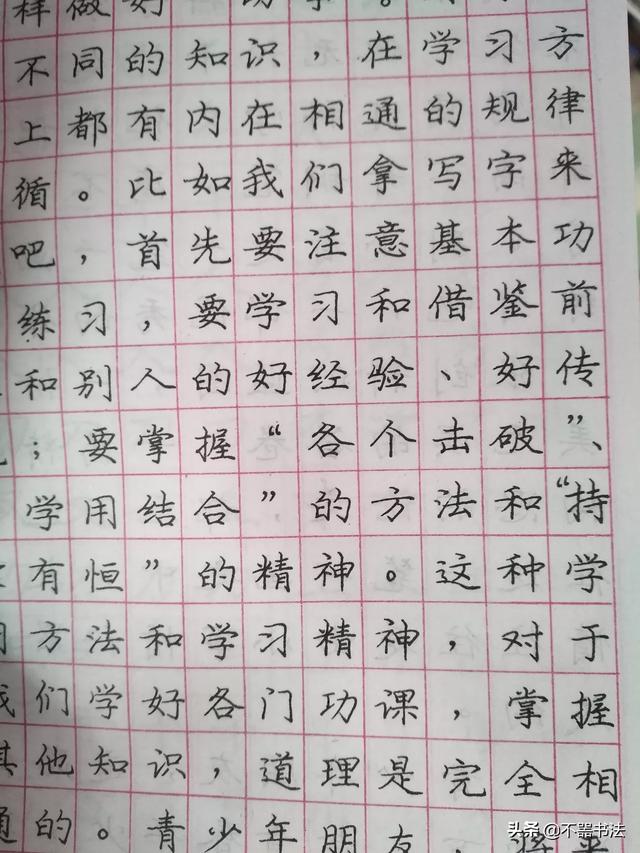 样做好
不同的知识，在学习方
上都有内在相通的规律
循。比如我们拿写字来
吧，首先要注意基本功
练习，要学习和借鉴前
和别人的好经验、好传
；要掌握“各个击破”、
学用结合”的方法和“持
有恒”的精神。这种学
方法和学习精神，对于
我们学好各门功课，掌握
其他知识，道理是完全相
通的。青少年朋友，将来
头条@不器书法